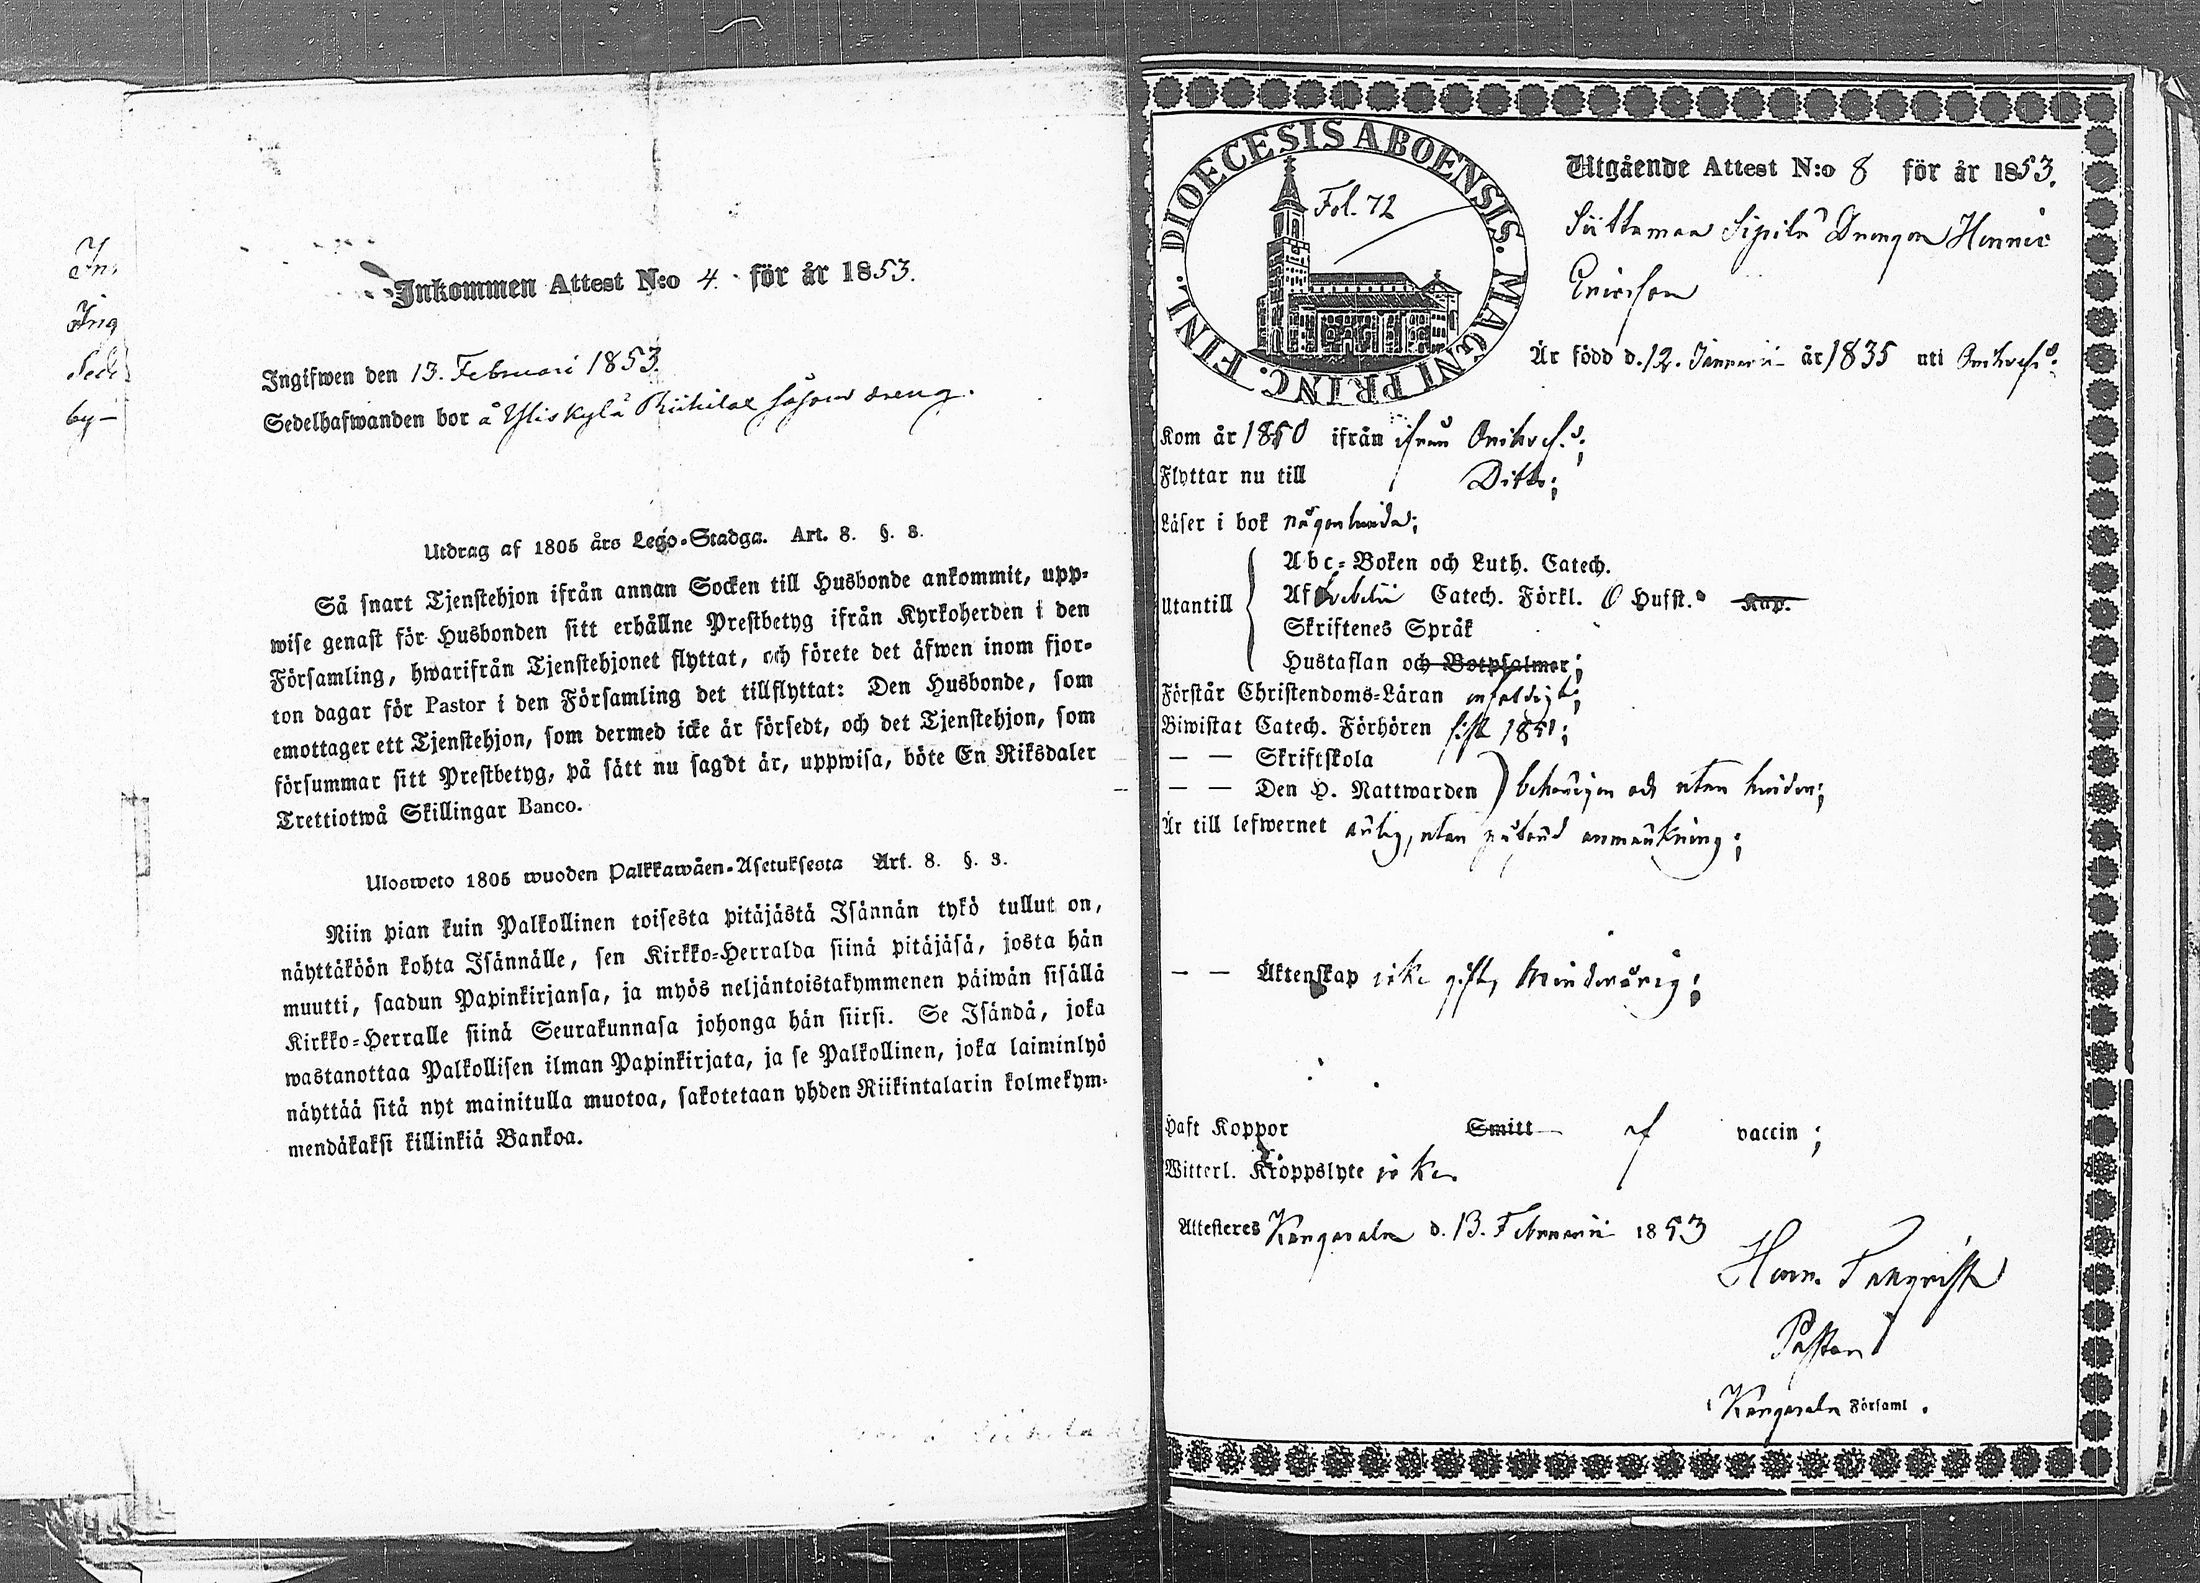 In,
Ing
Sede
by —
Inkommen Attest N:o 4. för år 1853.
Ingifwen den 13. Februari 1853.
Sedelhafwanden bor å Yliskylä såsom dreng.
Utdrag af 1805 års Lego-Stadga. Art. 8. §. 3.
Så snart Tjenstehjon ifrån annan Socken till Husbonde ankommit, upp-
wise genast för Husbonden sitt erhållne Prestbetyg ifrån Kyrkoherden i den
Församling, hwarifrån Tjenstehjonet flyttat, och förete det äfwen inom fjor-
ton dagar för Pastor i den Församling det tillflyttat: Den Husbonde, som
emottager ett Tjenstehjon, som dermed icke är försedt, och det Tjenstehjon, som
försummar sitt Prestbetyg, på sätt nu sagdt är, uppwisa, böte En Riksdaler
Trettiotwå Skillingar Banco.
Ulosweto 1805 wuoden Palkkawäen-Asetuksesta Art. 8. §. 3.
Niin pian kuin Palkollinen toisesta pitäjästä Isännän tykö tullut on,
näyttäköön kohta Isännälle, sen Kirkko-Herralda siinä pitäjäsä, josta hän
muutti, saadun Papinkirjansa, ja myös neljäntoistakymmenen päiwän sisällä
Kirkko-Herralle siinä Seurakunnasa johonga hän siirsi. Se Isändä, joka
wastanottaa Palkollisen ilman Papinkirjata, ja se Palkollinen, joka laiminlyö
näyttää sitä nyt mainitulla muotoa, sakotetaan yhden Riikintalarin kolmekym-
mendäkaksi killinkiä Bankoa.
DIOECESIS ABOENSIS. MAGNI PRINC. FINL.
Fol. 72
Utgående Attest N:o 8 för år 1853.
Sipilä Drengen Henric
Ericsson
Är född d. 12. Januarii år 1835 uti Orihves.
Kom år 1850 ifrån ifrån Orihves.;
Flyttar nu till Ditto;
Läser i bok någorlunda;
Utantill
Abc-Boken och Luth. Catech.
Af Svebelii Catech. Förkl. O Husst. Kap.
Skriftenes Språk
Hustaflan och Botpsalmer;
Förstår Christendoms-Läran enfaldigt;
Biwistat Catech. Förhören sist 1851;
— — Skriftskola
— — Den H. Nattwarden behörigen och utan hinder;
Är till lefwernet ärlig, utan påtald anmärkning;
— — Äktenskap icke gift, Minderårig;
Haft Koppor Smitt af vaccin;
Witterl. Kroppslyte icke.
Attesteres Kangasala d. 13. Februarii 1853
Pastor
i Kangasala Församl.